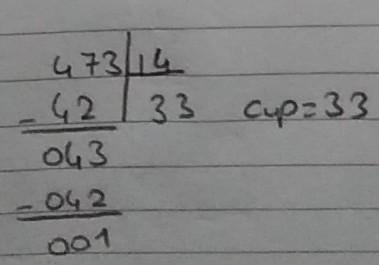 473 14
-42 33 cup=33
043
-042
001